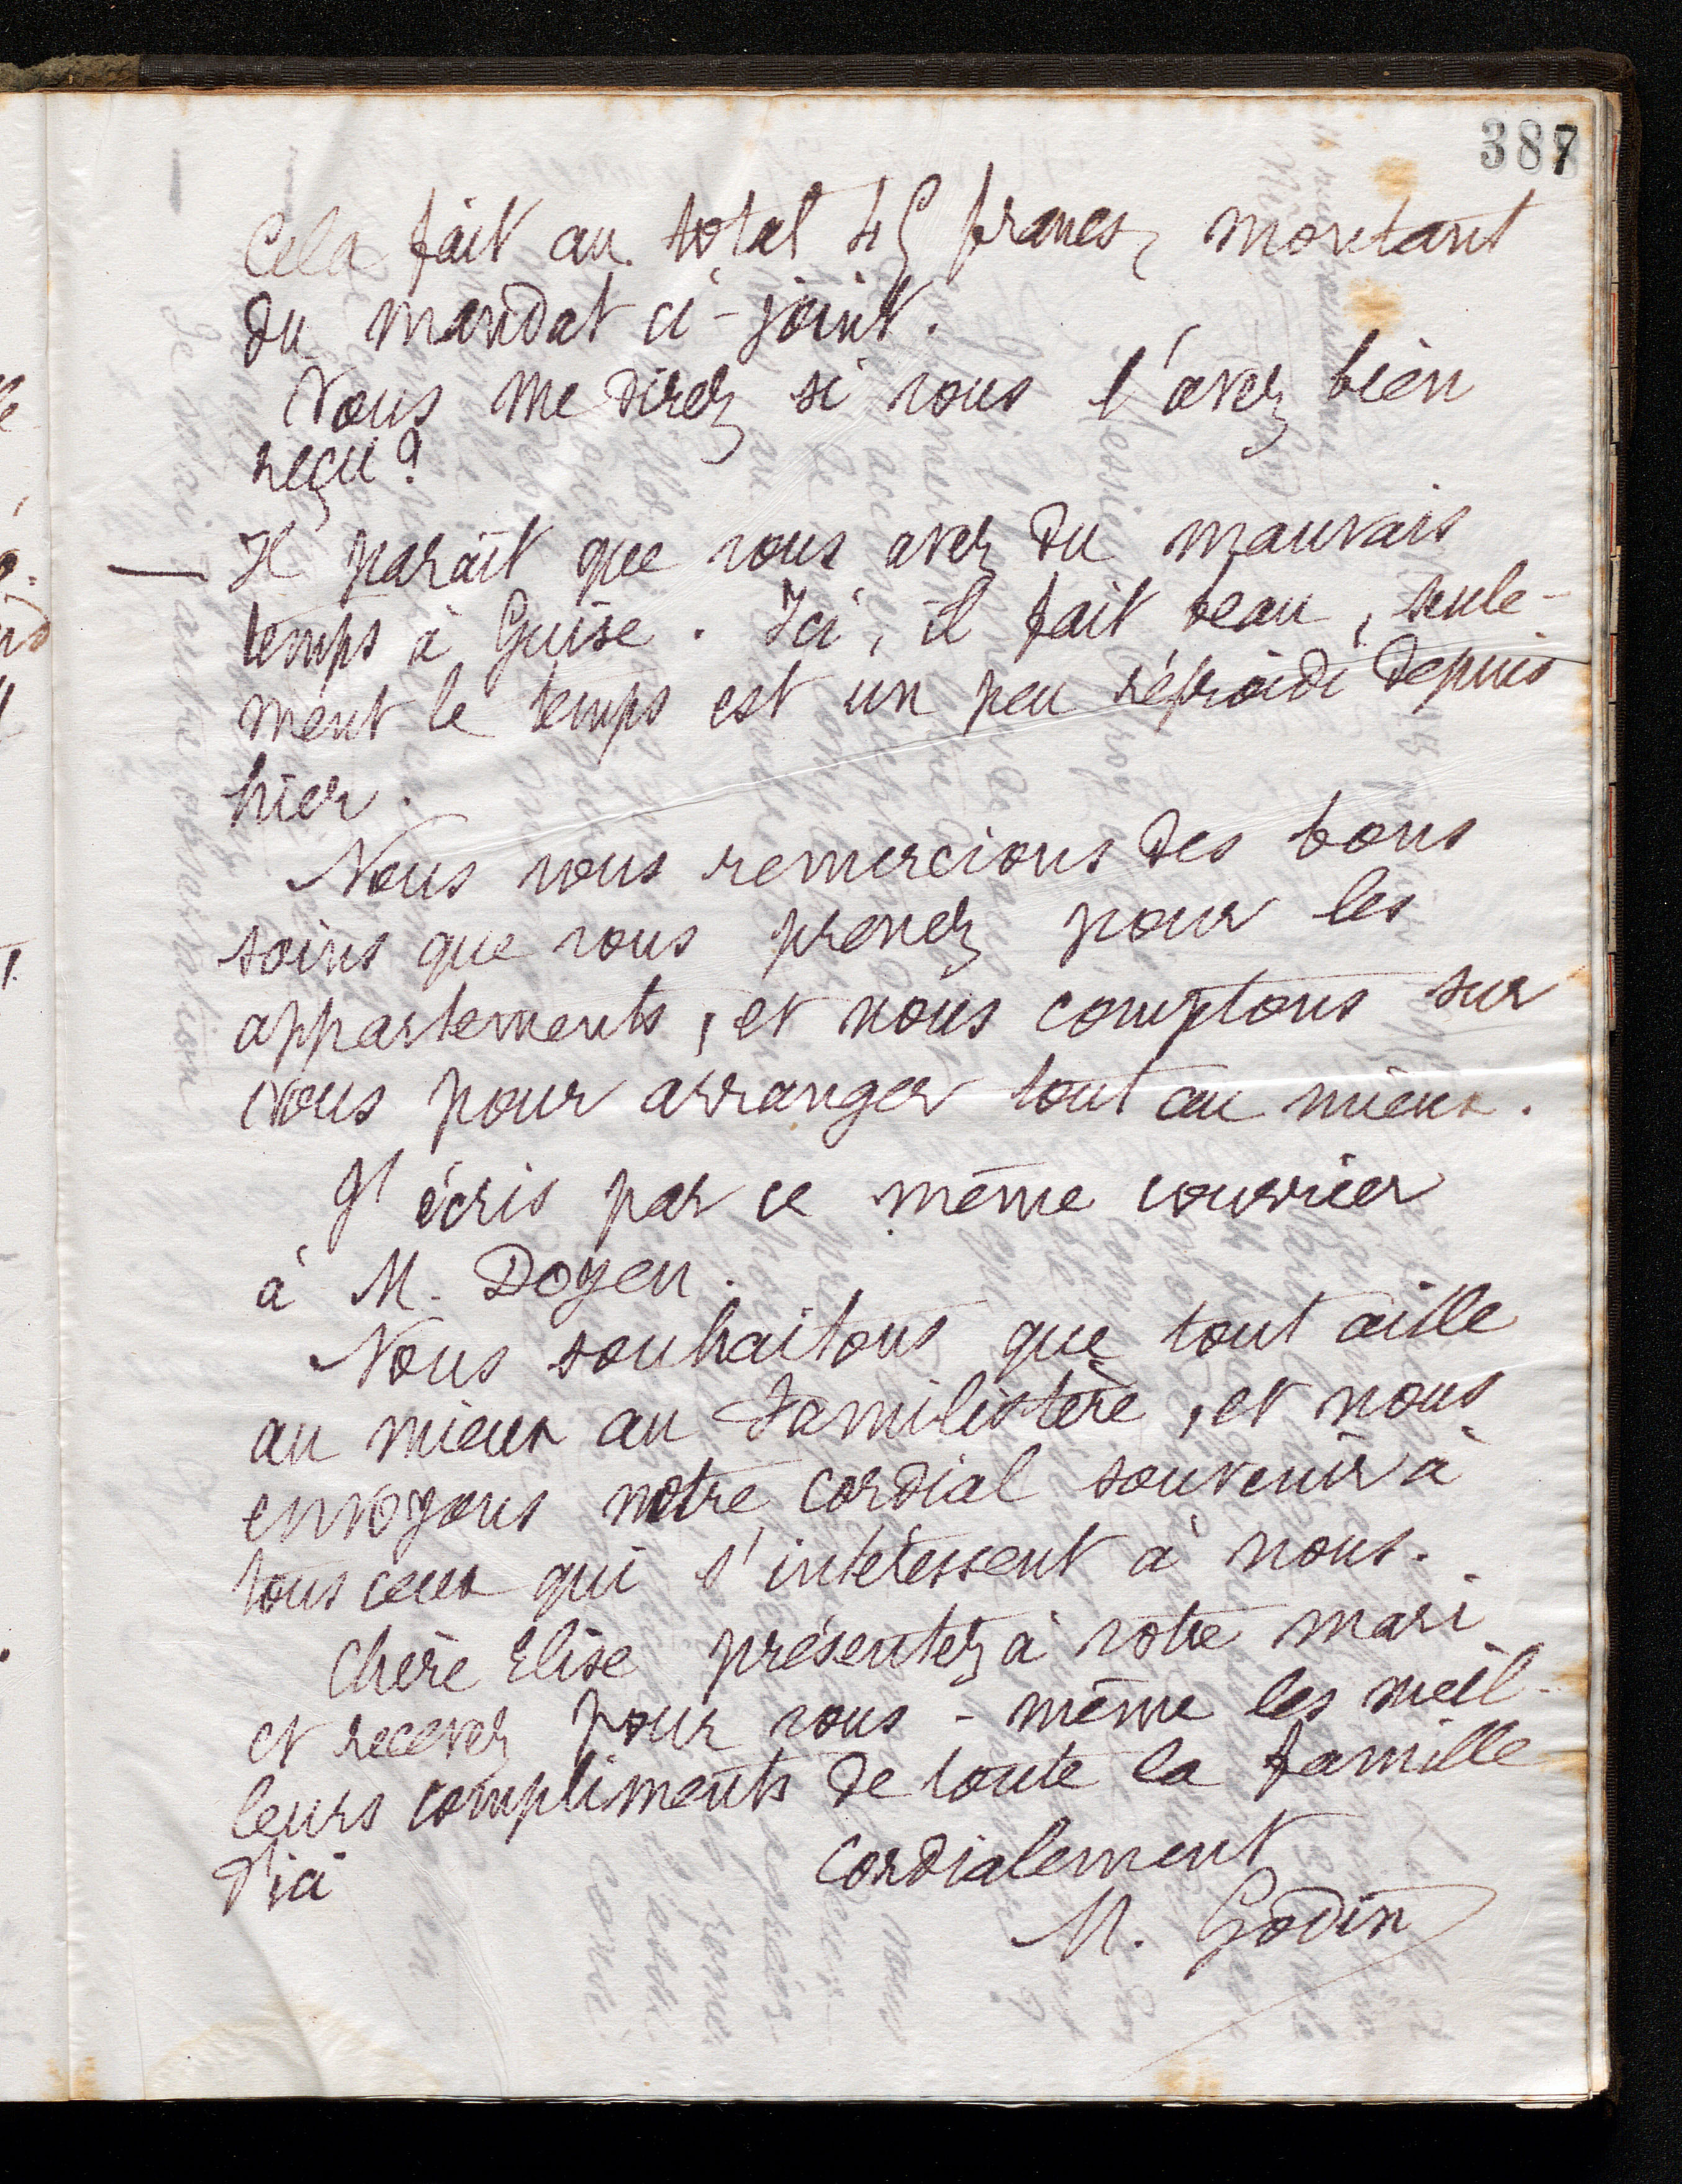 387
Cela fait au total 45 francs, montant
du mandat ci-joint.
Vous me direz si vous l'avez bien
reçu?
— Il paraît que vous avez du mauvais
temps à Guise. Ici, il fait beau, seule-
ment le temps est un peu réfroidi depuis
hier.
Nous vous remercions des bons
soins que vous prenez pour les
appartements, et nous comptons sur
vous pour arranger tout au mieux.
J'écris par ce même courrier
à M. Doyen.
Nous souhaitons que tout aille
au mieux au Familistère, et nous
envoyons notre cordial souvenir à
tous ceux qui s'intéressent à nous.
Chère Elise présentez à votre mari
et recevez pour vous-même les meil-
leurs compliments de toute la famille
d'ici
Cordialement
M. Godin